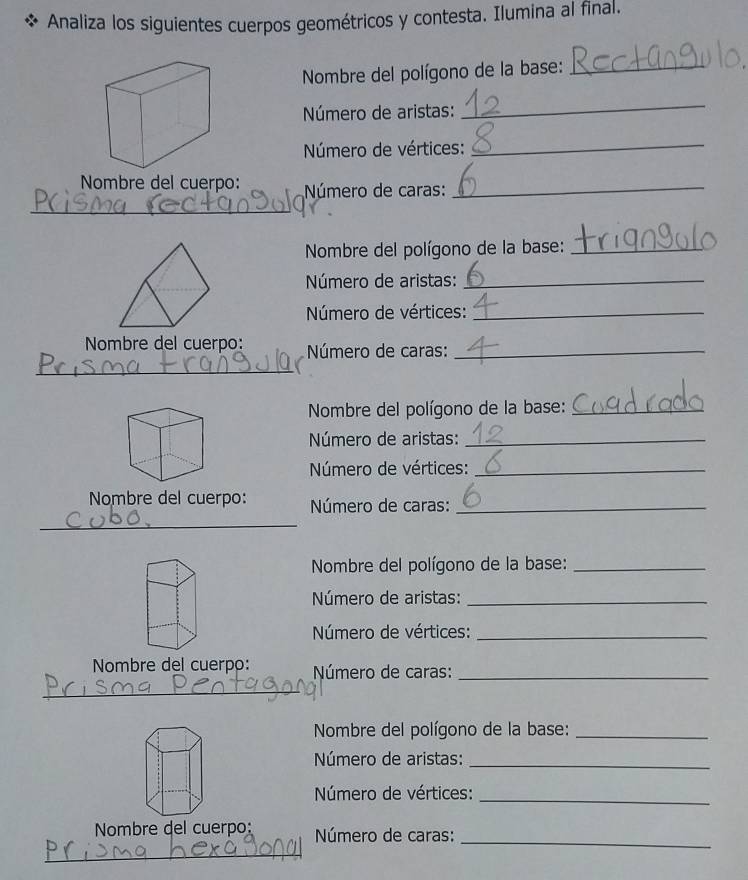 ❖ Analiza los siguientes cuerpos geométricos y contesta. Ilumina al final.
Nombre del polígono de la base: Rectangulo.
Número de aristas: 12
Número de vértices: 8
Nombre del cuerpo:
Número de caras: 6
Prisma rectangular.
Nombre del polígono de la base: triangulo
Número de aristas: 6
Número de vértices: 4
Nombre del cuerpo:
Número de caras: 4
Prisma trangular
Nombre del polígono de la base: Cuadrado
Número de aristas: 12
Número de vértices: 6
Nombre del cuerpo:
Número de caras: 6
Cubo.
Nombre del polígono de la base:
Número de aristas:
Número de vértices:
Nombre del cuerpo:
Número de caras:
Prisma Pentagonal
Nombre del polígono de la base:
Número de aristas:
Número de vértices:
Nombre del cuerpo:
Número de caras:
Prisma hexagonal